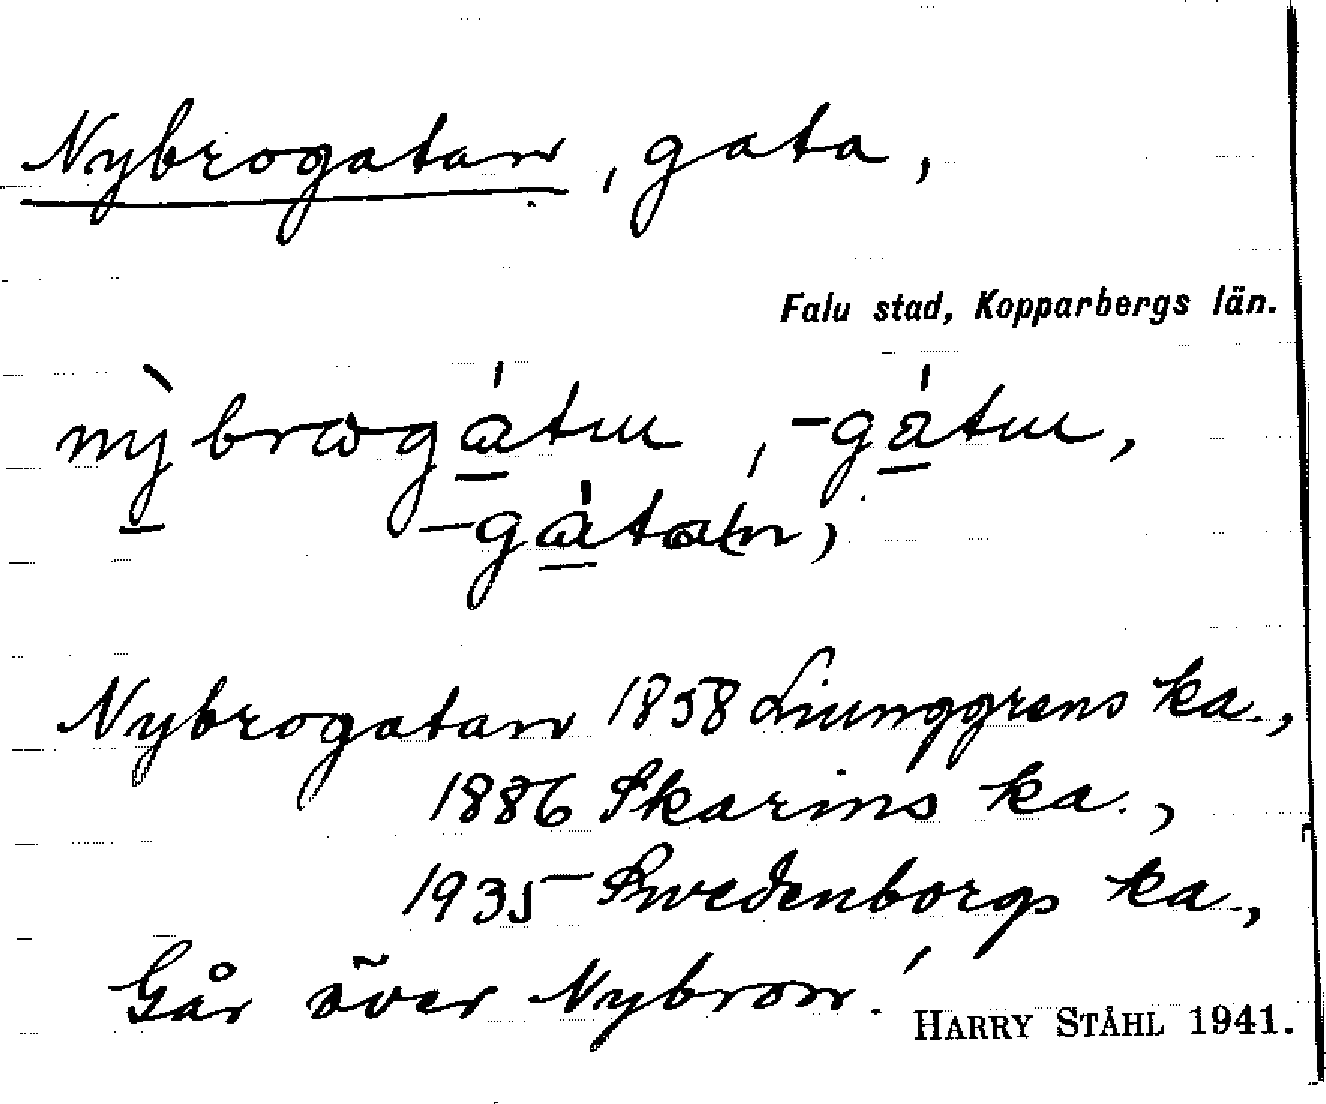 Nybrogatan, gata,
Falu stad, Kopparbergs län.
Nybrogatan 1858 Liunggrens ka.,
1886 Skarins ka.,
1935 Swedenborgs ka.,
Går över Nybron.
HARRY STÅHL 1941.